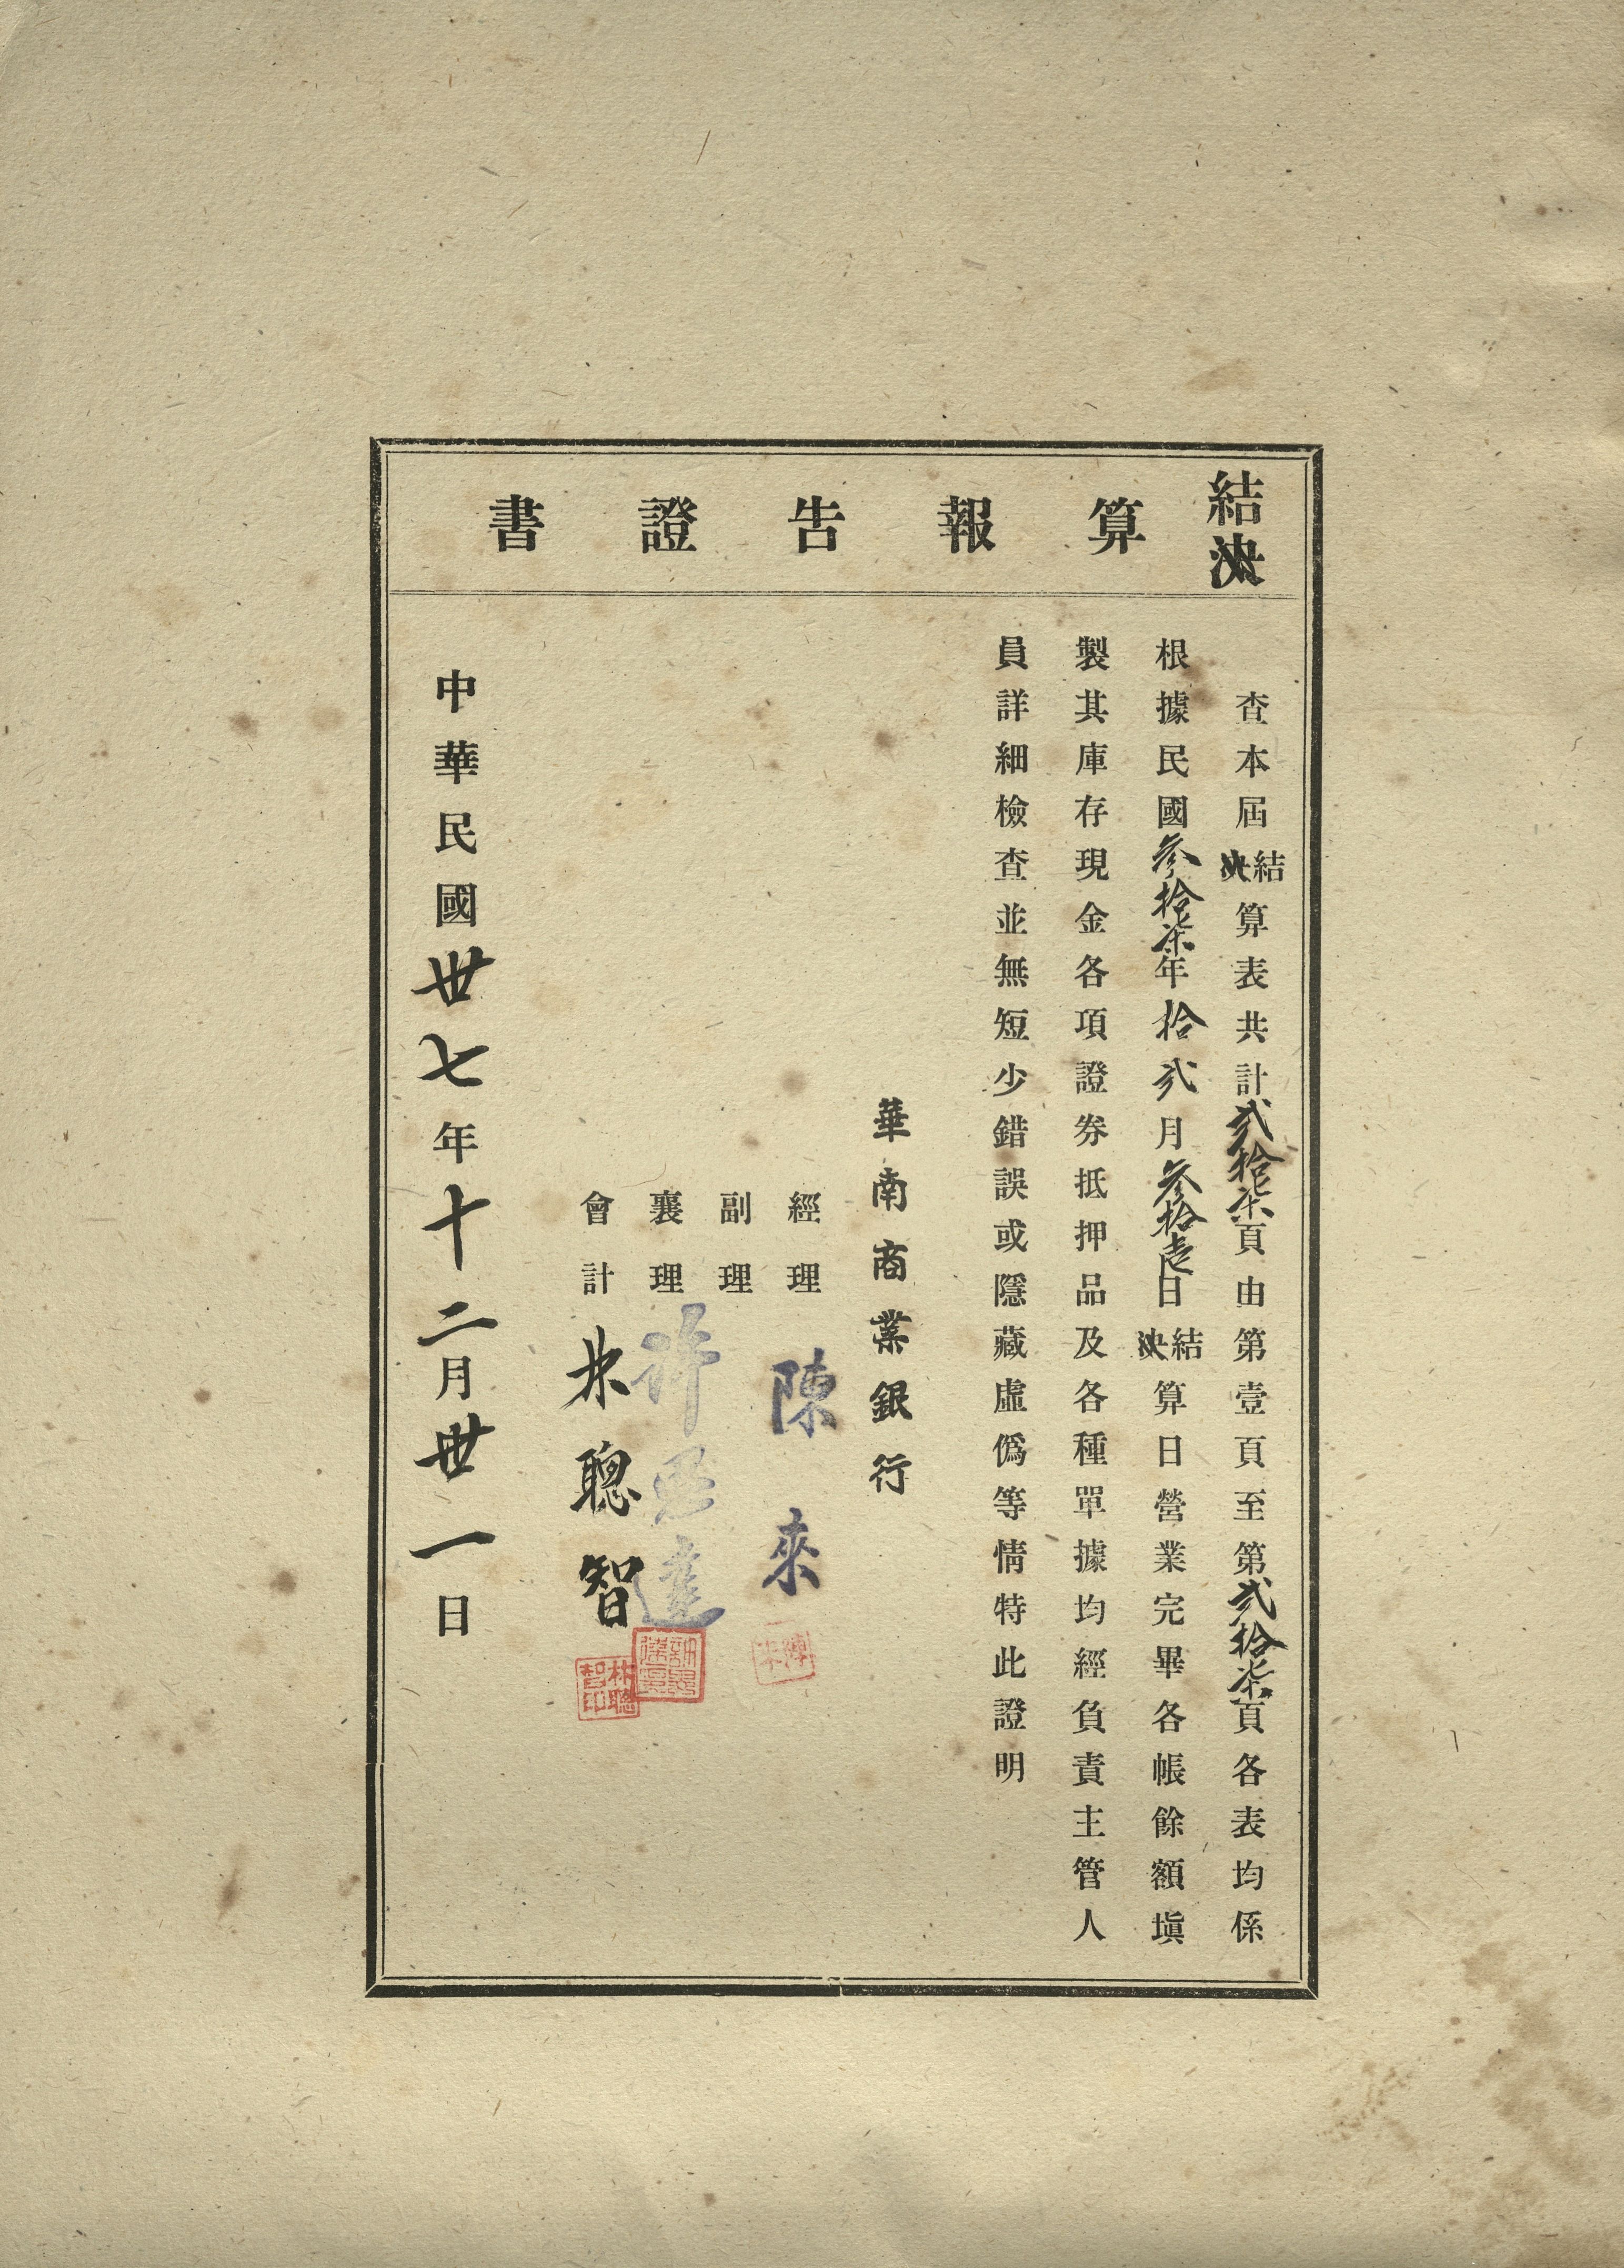 結決算報告證書
查本屆結決算表共計貳拾柒頁由第壹頁至第貳拾柒頁各表均係
根據民國參拾柒年拾貳月參拾壹日結決算日營業完畢各帳餘額塡
製其庫存現金各項證券抵押品及各種單據均經負責主管人
員詳細檢查並無短少錯誤或隱藏虛僞等情特此證明
華南商業銀行
經理 陳來
副理
襄理 許
會計 林聰智
陳來
林聰智印
中華民國卅七年十二月卅一日